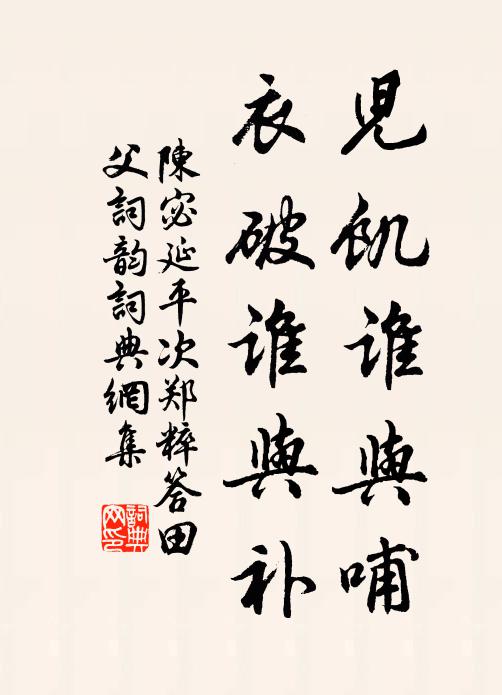 兒飢誰與哺
衣破誰與补
陳宓延平次郑粹答田
父詞韵詞典網集
詞典
网印